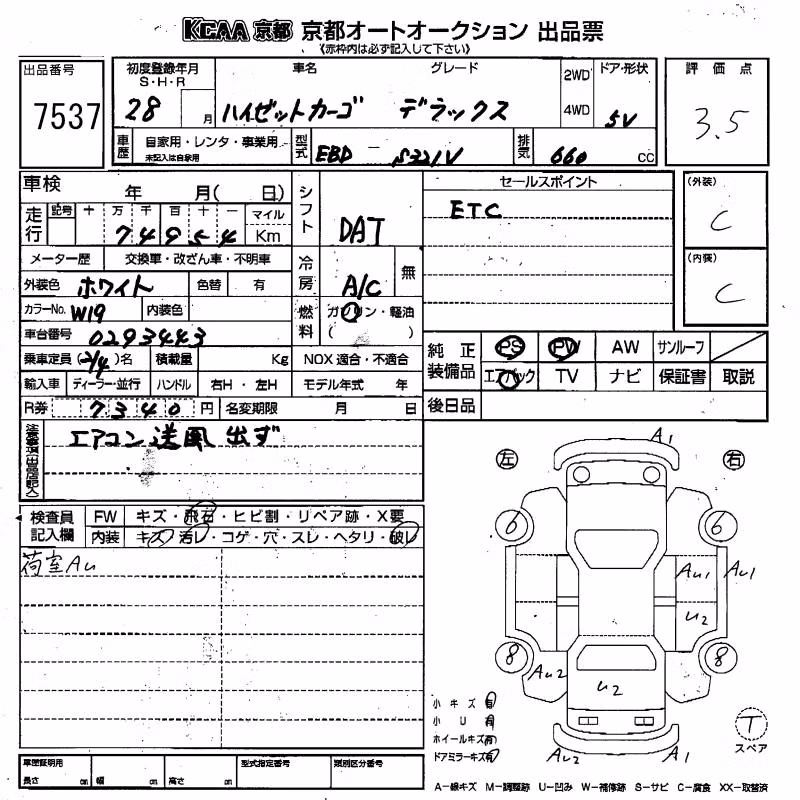 KCAA 京都 京都オートオークション 出品票
《赤枠内は必ず記入して下さい》
出品番号
7537
初度登録年月 車名 グレード 2WD ドア・形状
S・H・R
28 月 ハイゼットカーゴ デラックス 4WD 5V
車歴 自家用・レンタ・事業用 型式 EBD - S321V 排気 660 CC
未記入は自家用
評価点
3.5
車検 年 月( 日) シフト DAT
走行 記号 十 万 千 百 十 一 マイル
7 4 9 5 4 Km
メーター歴 交換車・改ざん車・不明車 冷房 A/C 無
外装色 ホワイト 色替 有
カラーNo. W19 内装色 燃料 ガソリン・軽油
( )
車台番号 0293443
乗車定員 (2/4)名 積載量 Kg NOX 適合・不適合
輸入車 ディーラー・並行 ハンドル 右H・左H モデル年式 年
R券 7340 円 名変期限 月 日
セールスポイント
ETC
(外装)
C
(内装)
C
純正装備品 PS PW AW サンルーフ
エアバック TV ナビ 保証書 取説
後日品
注意事項(出品店記入)
エアコン送風出ず
検査員記入欄 FW キズ・飛石・ヒビ割・リペア跡・X要
内装 キズ・汚レ・コゲ・穴・スレ・ヘタリ・破レ
荷室AU
左 右
A1
6 6
AU1 AU1
U2
8 8
AU2
U2
AU2 A1
小キズ 有
小U 有
ホイールキズ 有
ドアミラーキズ 有
T
スペア
車庫証明用 型式指定番号 類別区分番号
長さ cm 幅 cm 高さ cm
A-線キズ M-調整跡 U-凹み W-補修跡 S-サビ C-腐食 XX-取替済